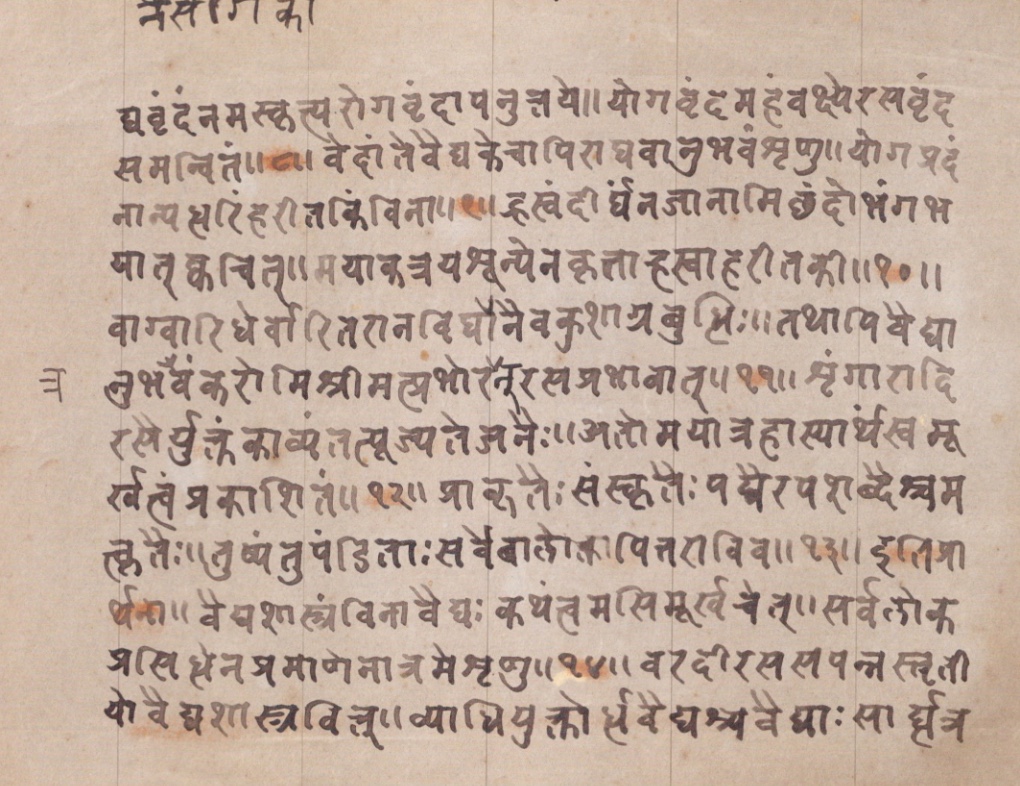 द्यवृंदं नमस्कृत्य रोगवृंदापनुत्तये॥ योगवृंदमहं वक्ष्ये रसवृंद
समन्वितं॥८॥ वेदांतैवैद्यकेचापि राघवानुभवं शृणु॥ योगप्रदं
नान्य हरिं हरीतकिं विना॥९॥ ह्रस्वं दीर्घं न जानामि छंदोभंगभ
यात् क्वचित्॥ मया कत्रयशून्येन कृता ह्रस्वा हरीतकी॥१०॥
वाग्वारिधेर्वारितरानविद्यौनैव कुशाग्रबुद्धिः॥ तथापि वैद्या
नुभवं करोमि श्रीमत्प्रभोरत्नुरसप्रभावात्॥११॥ शृंगारादि
रसैर्युक्तं काव्यं तत्पूज्यते जनैः॥ अतो मयात्र हास्यार्थं स्वमू
र्खत्वं प्रकाशितं॥१२॥ प्राकृतैः संस्कृतैः पद्यैरपशब्दैश्चम
त्कृतैः॥ तुष्यंतु पंडिताः सर्वे बालोक्तापित्तराविव॥१३॥ इति प्रा
र्थना॥ वैद्यशास्त्रं विना वैद्यः कथं त्वमसि मूर्ख चेत्॥ सर्वलोक
प्रसिद्धेन प्रमाणेनात्र मे शृणु॥१४॥ वरदीरससपन्नस्तृती
यो वैद्यशास्त्रवित्॥ व्याधियुक्तोर्धवैद्यश्च वैद्याः सार्द्धत्र